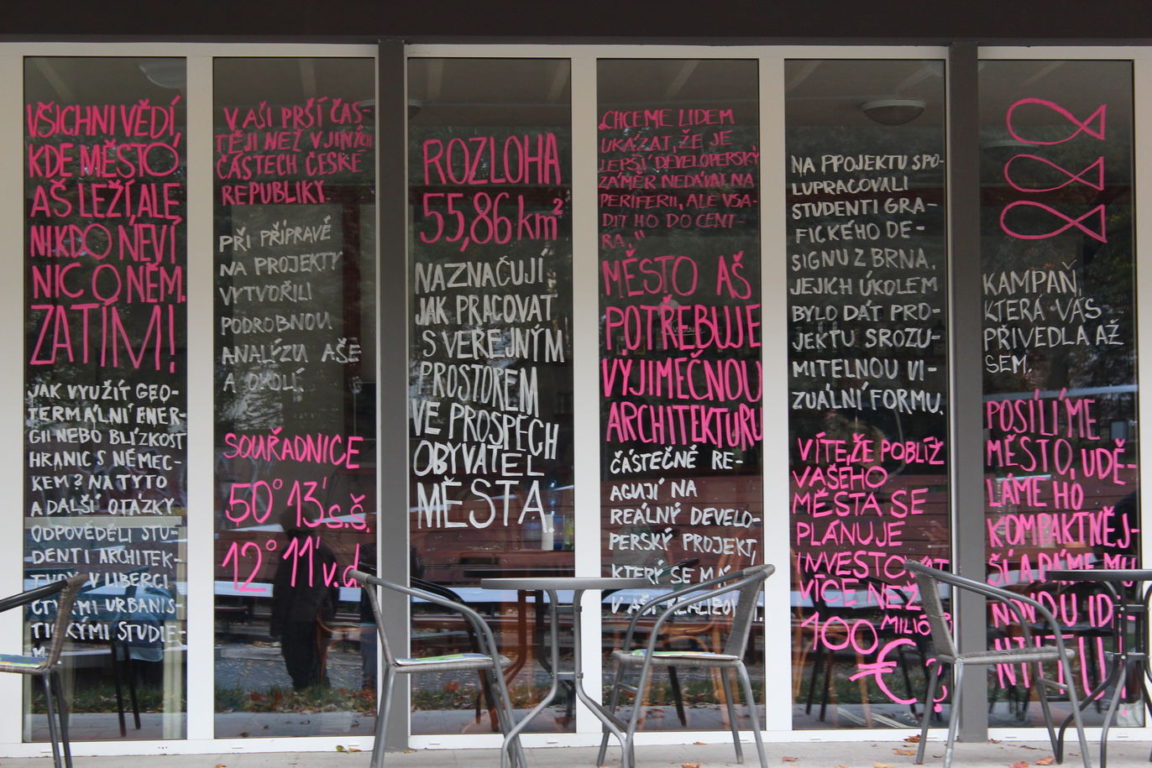 VŠICHNI VĚDÍ,
KDE MĚSTO
AŠ LEŽÍ, ALE
NIKDO NEVÍ
NIC O NĚM.
ZATÍM!
JAK VYUŽÍT GEO-
TERMÁLNÍ ENER-
GII NEBO BLÍZKOST
HRANIC S NĚMEC-
KEM? NA TYTO
A DALŠÍ OTÁZKY
ODPOVĚDĚLI STU-
DENTI ARCHITEK-
TURY V LIBERCI
ČTYŘMI URBANIS-
TICKÝMI STUDIE-
V AŠI PRŠÍ ČAS-
TĚJI NEŽ V JINÝCH
ČÁSTECH ČESKÉ
REPUBLIKY.
PŘI PŘÍPRAVĚ
NA PROJEKTY
VYTVOŘILI
PODROBNOU
ANALÝZU AŠE
A OKOLÍ.
SOUŘADNICE
50°13' s.š.
12°11' v.d.
ROZLOHA
55,86 km²
NAZNAČUJÍ
JAK PRACOVAT
S VEŘEJNÝM
PROSTOREM
VE PROSPĚCH
OBYVATEL
MĚSTA.
„CHCEME LIDEM
UKÁZAT, ŽE JE
LEPŠÍ DEVELOPERSKÝ
ZÁMĚR NEDÁVAT NA
PERIFERII, ALE VSA-
DIT HO DO CENT-
RA."
MĚSTO AŠ
POTŘEBUJE
VÝJIMEČNOU
ARCHITEKTURU
ČÁSTEČNĚ RE-
AGUJÍ NA
REÁLNÝ DEVELO-
PERSKÝ PROJEKT,
KTERÝ SE MÁ
V AŠI REALIZOV
NA PROJEKTU SPO-
LUPRACOVALI
STUDENTI GRA-
FICKÉHO DE-
SIGNU Z BRNA.
JEJICH ÚKOLEM
BYLO DÁT PRO-
JEKTU SROZU-
MITELNOU VI-
ZUÁLNÍ FORMU.
VÍTE, ŽE POBLÍŽ
VAŠEHO
MĚSTA SE
PLÁNUJE
INVESTOVAT
VÍCE NEŽ
400 MILIÓ
€?
KAMPAŇ,
KTERÁ VÁS
PŘIVEDLA AŽ
SEM.
POSÍLÍME
MĚSTO, UDĚ-
LÁME HO
KOMPAKTNĚJ-
ŠÍ A DÁME MU
NOVOU ID
NTITU!